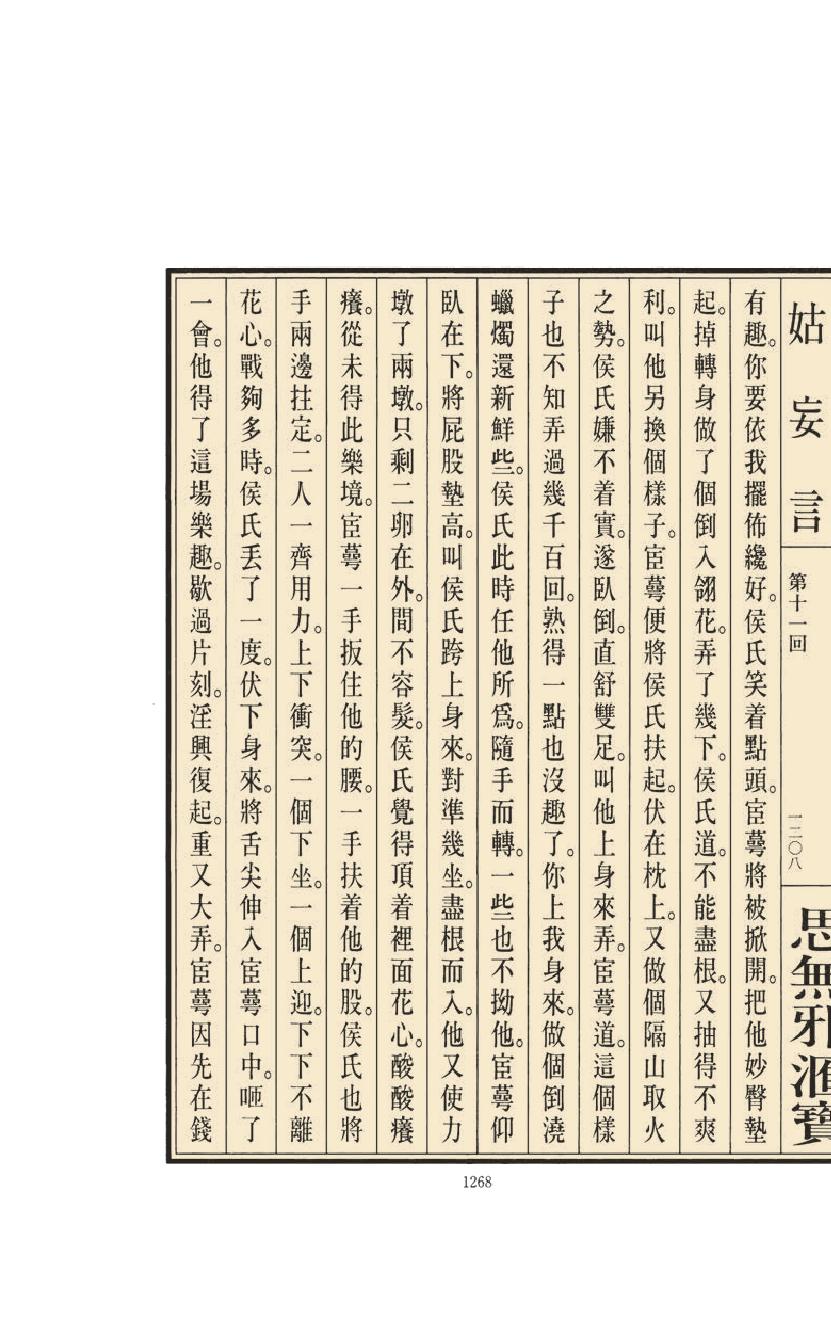 姑妄言
第十一回
一二〇八
思無邪滙寶
有趣。你要依我擺佈纔好。侯氏笑着點頭。宦蕚將被掀開。把他妙臀墊
起。掉轉身做了個倒入翎花。弄了幾下。侯氏道。不能盡根。又抽得不爽
利。叫他另換個樣子。宦蕚便將侯氏扶起。伏在枕上。又做個隔山取火
之勢。侯氏嫌不着實。遂臥倒。直舒雙足。叫他上身來弄。宦蕚道。這個樣
子也不知弄過幾千百回。熟得一點也沒趣了。你上我身來。做個倒澆
蠟燭還新鮮些。侯氏此時任他所爲。隨手而轉。一些也不拗他。宦蕚仰
臥在下。將屁股墊高。叫侯氏跨上身來。對準幾坐。盡根而入。他又使力
墩了兩墩。只剩二卵在外。間不容髮。侯氏覺得頂着裡面花心。酸酸癢
癢。從未得此樂境。宦蕚一手扳住他的腰。一手扶着他的股。侯氏也將
手兩邊拄定。二人一齊用力。上下衝突。一個下坐。一個上迎。下下不離
花心。戰夠多時。侯氏丟了一度。伏下身來。將舌尖伸入宦蕚口中。咂了
一會。他得了這場樂趣。歇過片刻。淫興復起。重又大弄。宦蕚因先在錢
1268